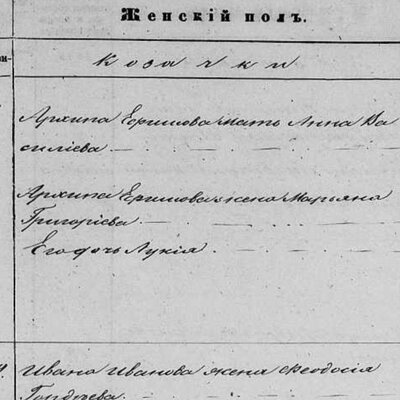 Женскій полъ.
Козачки
Архипа Ефимова мать Анна Ва
силіева
Архипа Ефимова жена Марьяна
Григоріева
Его дочь Лукія
Ивана Иванова жена Феодосія